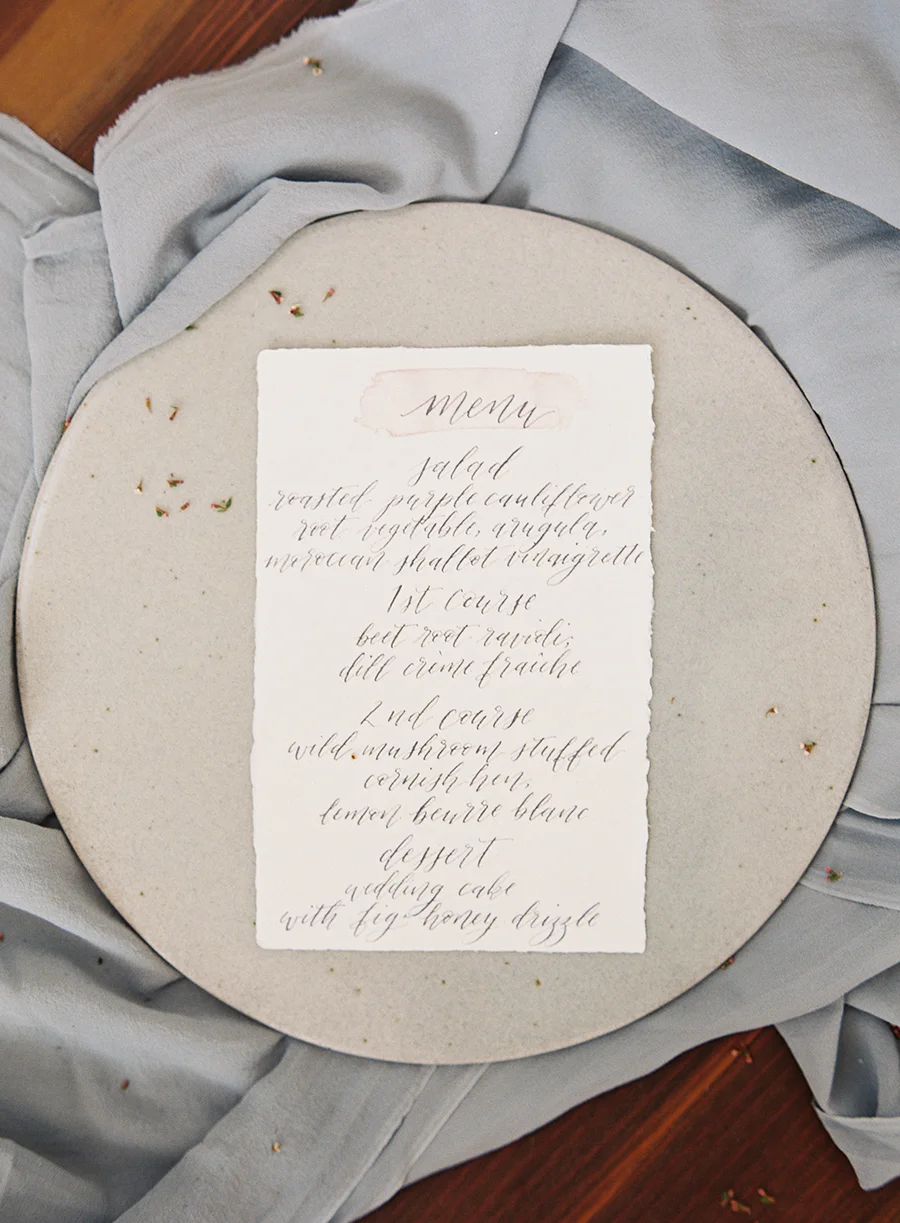 menu
salad
roasted purple cauliflower
root vegetable, arugula,
moroccan shallot vinaigrette
1st course
beet root ravioli,
dill crème fraiche
2nd course
wild mushroom stuffed
cornish hen,
lemon beurre blanc
dessert
wedding cake
with fig honey drizzle